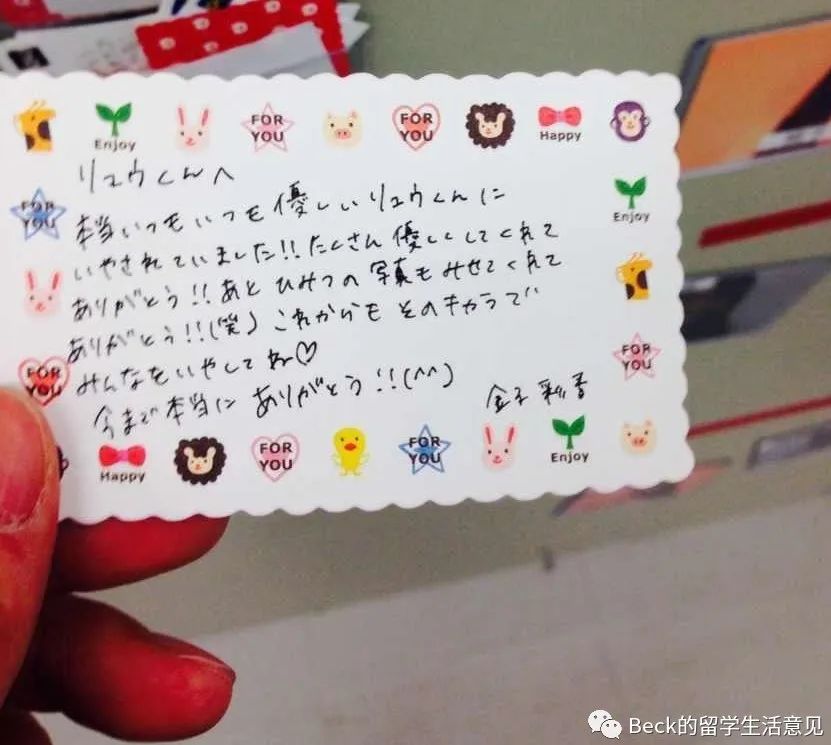 Enjoy
FOR YOU
FOR YOU
Happy
リュウくんへ
FOR YOU
本当いつもいつも優しいリュウくんに
Enjoy
いやされていました!!たくさん優しくしてくれて
ありがとう!!あとひみつの写真もみせてくれて
ありがとう!!(笑)これからもそのキャラで
FOR YOU
みんなをいやしてね♡
FOR YOU
今まで本当にありがとう!!(^^)
金子彩香
Happy
FOR YOU
FOR YOU
Enjoy
Beck的留学生活意见